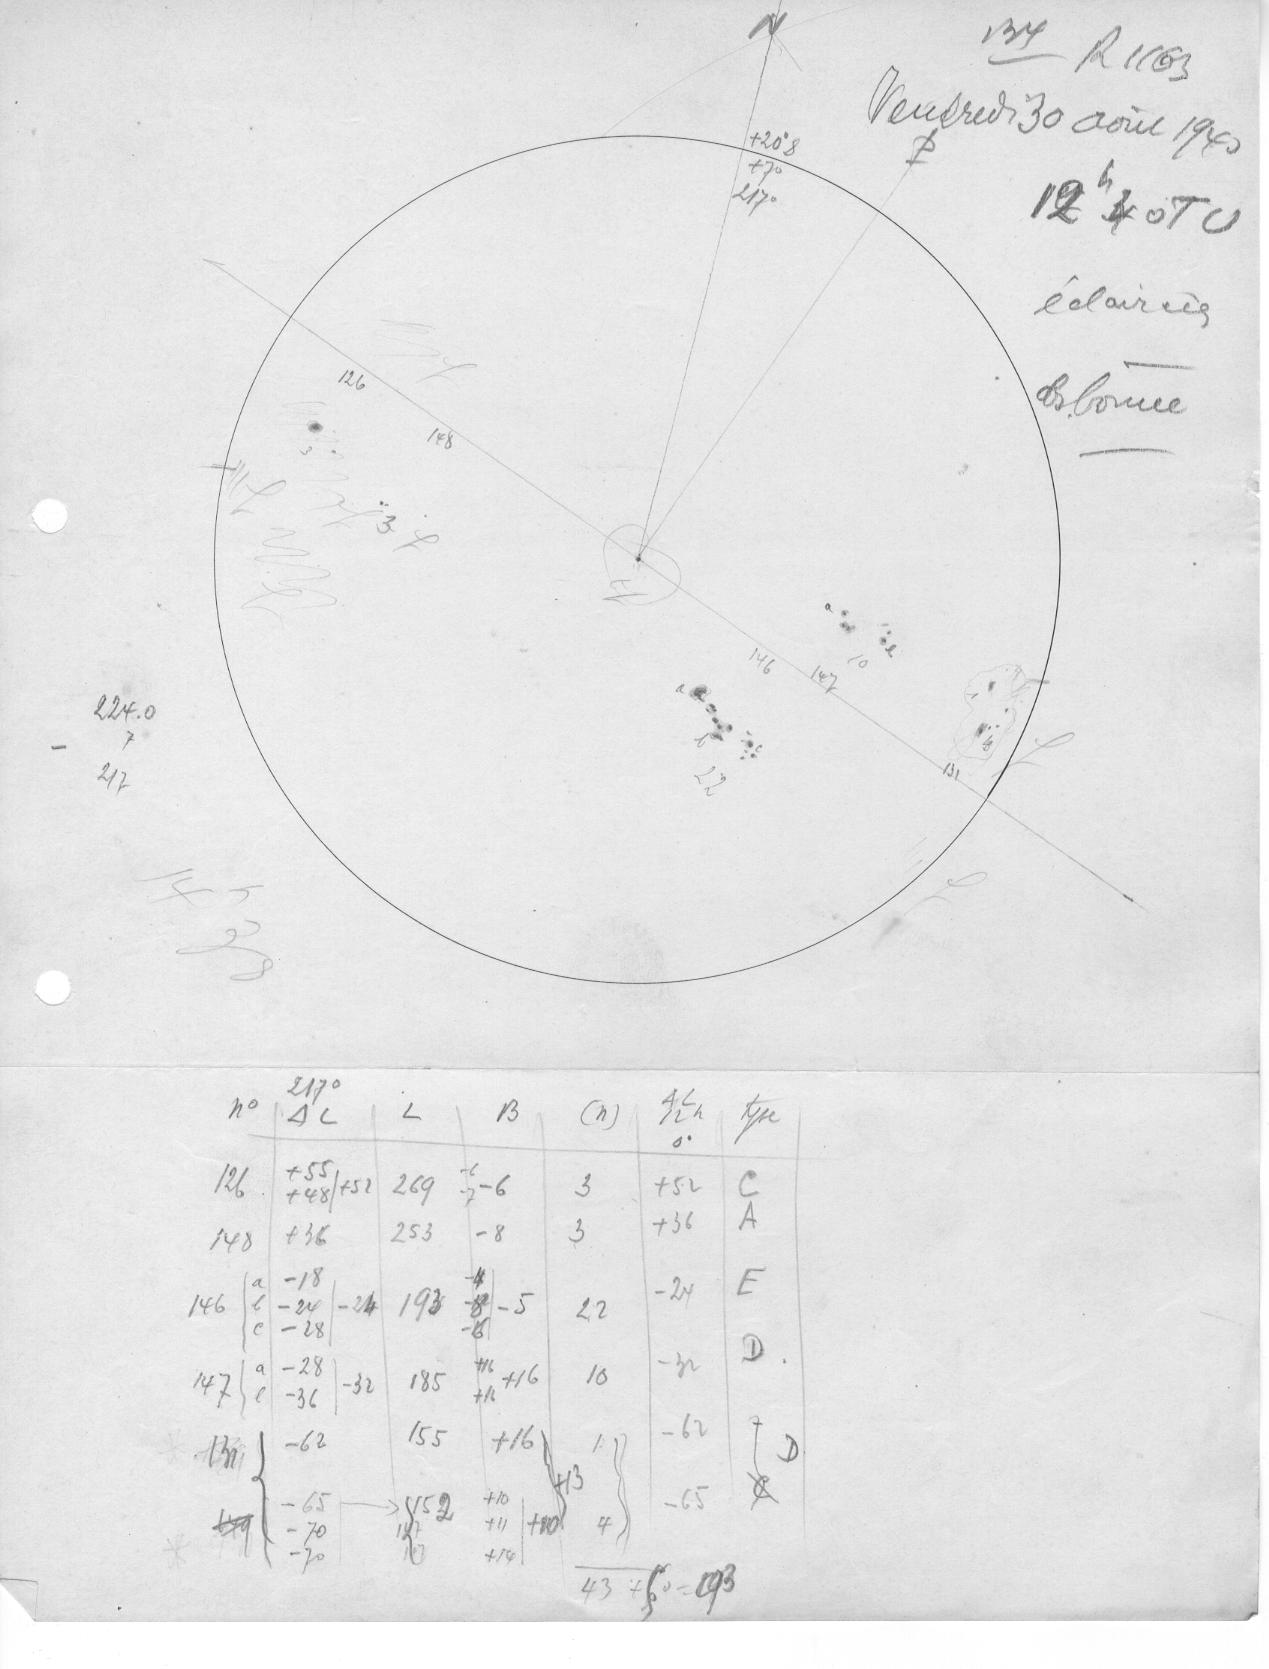 N
134 R 1163
Vendredi 30 août 1940
P
+20°8
+7°
217°
12h 40 TU
éclaircies
126
148
3
3 f
a
10
146
147
a
b
c
22
131
f
f
224.0
- 7
217
217°
n° ΔL L B (n) type
0°
126 +55 +48 +52 269 -6 -7 -6 3 +52 C
148 +36 253 -8 3 +36 A
146 a -18
b -24 -24 193 -5 22 -24 E
c -28
147 a -28 +16 -32 D.
b -36 -32 185 +16 +16 10
131 -62 155 +16 1 -62 D
+13
149 -65 152 +10 -65
-70 +11 +10 4
-70 +14
43 + 60 = 103